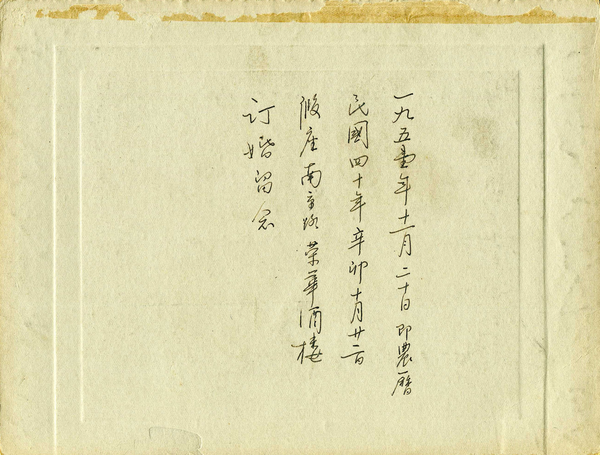 一九五壹年十一月二十日即農曆
民國四十年辛卯十月廿二日
假座南京路榮華酒樓
訂婚留念